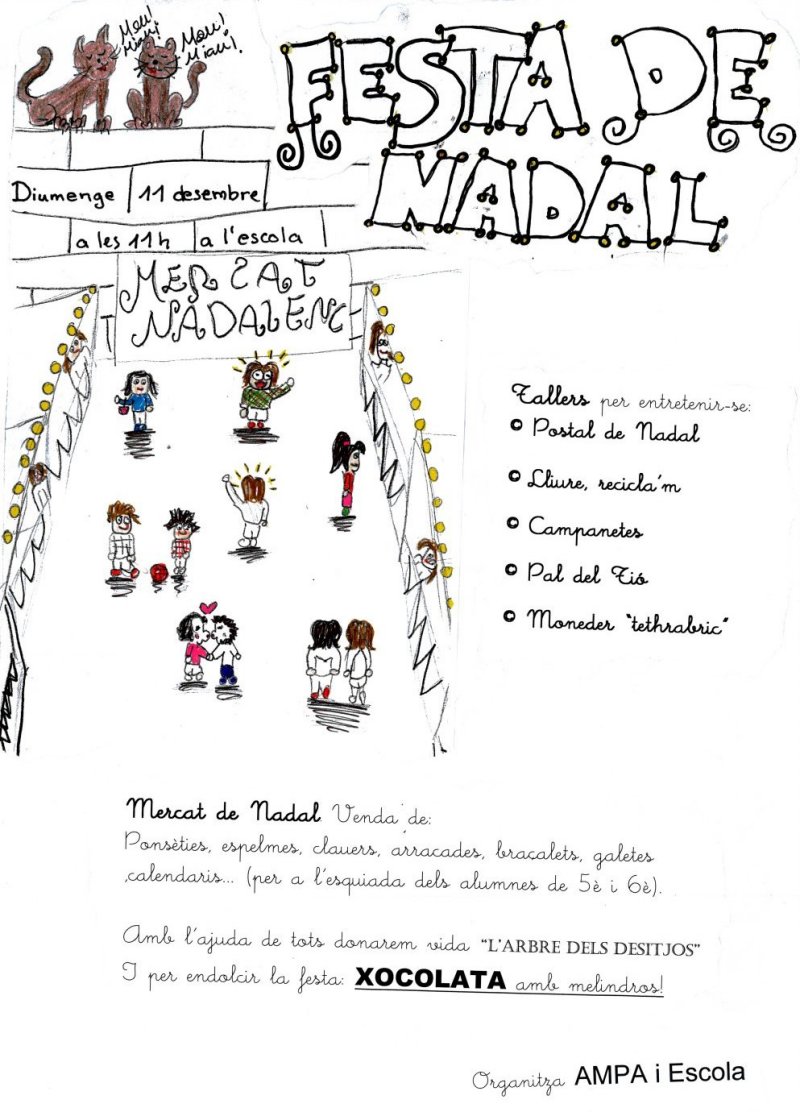 Meu!
Miau!
Meu!
Miau!
FESTA DE
NADAL
Diumenge 11 desembre
a les 11h a l'escola
MERCAT
NADALENC
Tallers per entretenir-se:
Postal de Nadal
Lliure, recicla´m
Campanetes
Pal del Tió
Moneder "tethrabric"
Mercat de Nadal Venda de:
Ponsèties, espelmes, clauers, arracades, braçalets, galetes
,calendaris... (per a l´esquiada dels alumnes de 5è i 6è).
Amb l´ajuda de tots donarem vida "L'ARBRE DELS DESITJOS"
I per endolcir la festa: XOCOLATA amb melindros!
Organitza AMPA i Escola